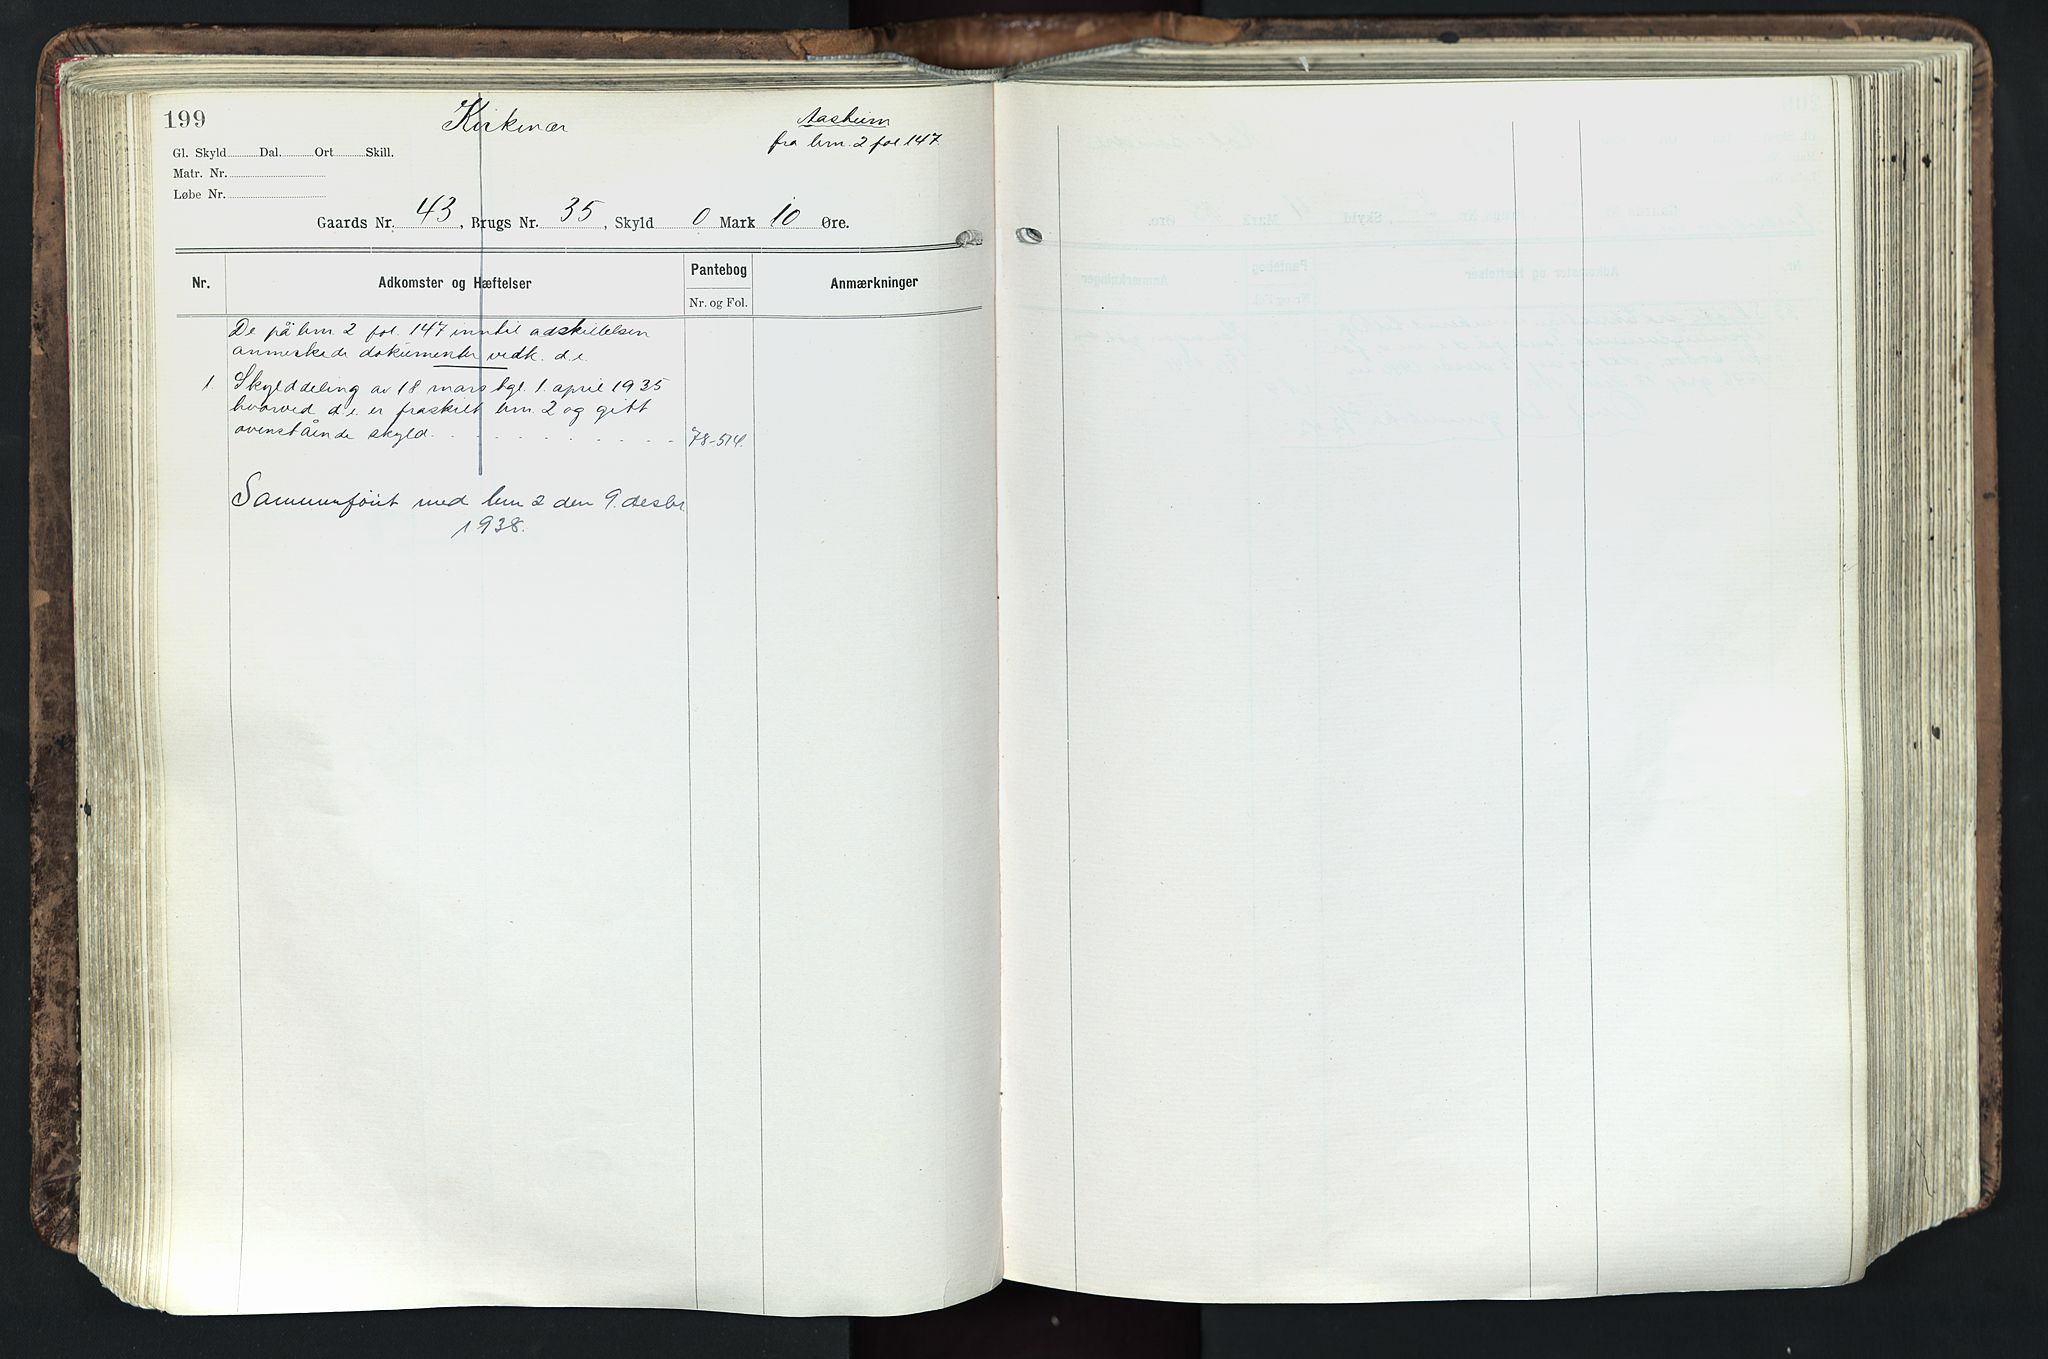 199
Kirkenær
Aasheim
fra brn. 2 fol 147
Gl. Skyld Dal. Ort Skill.
Matr. Nr.
Løbe Nr.
Gaards Nr. 43, Brugs Nr. 35, Skyld 0 Mark 10 Øre.
Nr. Adkomster og Hæftelser Pantebog Anmærkninger
Nr. og Fol.
De på brn. 2 fol. 147 inntil adskillelsen
anmerkede dokumenter vedk. d.e.
1. Skylddeling av 18 mars tgl. 1. april 1935
hvorved d.e. er fraskilt brn. 2 og gitt
ovenstående skyld. . . . . . . . . . . . 78-514.
Sammenføit med brn 2 den 9. desbr
1938.